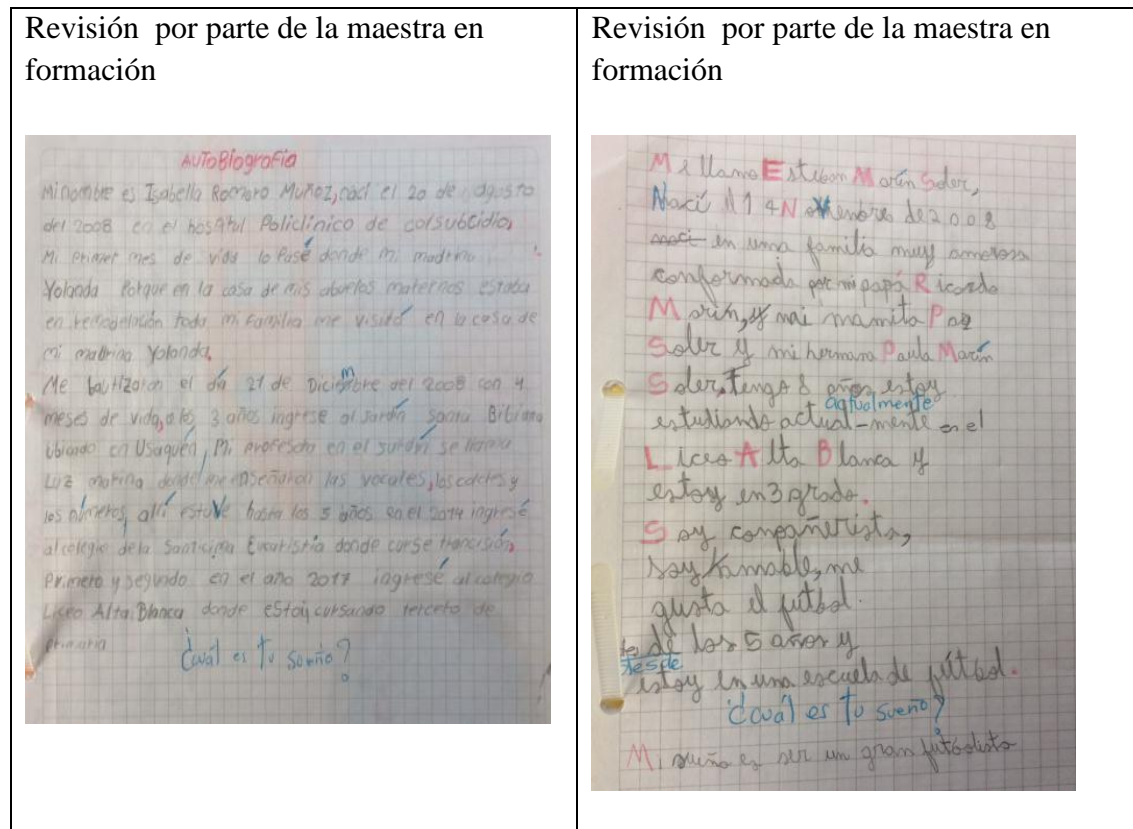 Revisión por parte de la maestra en
formación
AUTOBiografia
Mi nombre es Isabella Romero Muñoz, nací el 20 de agosto
del 2008 en el hospital Policlinico de colsubsidio,
Mi Primer mes de vida lo Pasé donde mi madrina
Yolanda Porque en la casa de mis abuelos maternos estaba
en remodelación toda mi familia me visitó en la casa de
mi madrina Yolanda,
Me bautizaron el día 21 de Diciembre del 2008 con 4
meses de vida, a los 3 años ingrese al Jardín Santa Bibiana
Ubicado en Usaquén, Mi profesora en el Jardín se llama
Luz marina donde me enseñaron las vocales, los colores y
los números, allí estuve hasta los 5 años en el 2014 ingresé
al colegio de la Santicima Eucaristía donde curse
Primero y segundo en el año 2017 ingresé al colegio
Liceo Alta Blanca donde estoy cursando tercero de
Primaria
¿Cuál es tu sueño?
Revisión por parte de la maestra en
formación
Me llamo Esteban Marín Soler,
Nací el 14 Noviembre de 2008
naci en una familia muy amorosa
conformada por mi papá Ricardo
Marín, y mi mamita Paz
Soler y mi hermana Paula Marín
Soler, Tengo 8 años, estoy
actualmente
estudiando actual-mente en el
Liceo Alta Blanca y
estoy en 3 grado.
Soy compañerista,
soy amable, me
gusta el futbol.
de los 5 años y
desde
estoy en una escuela de fútbol.
¿Cuál es tu sueño?
Mi sueño es ser un gran futbolista